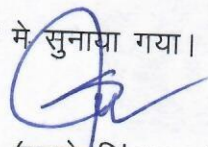 मे सुनाया गया।